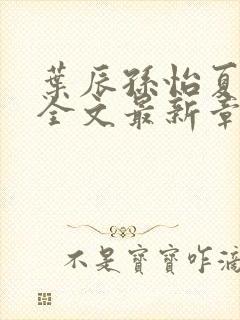 葉辰孫怡夏
全文最新章
不是寶寶咋滴